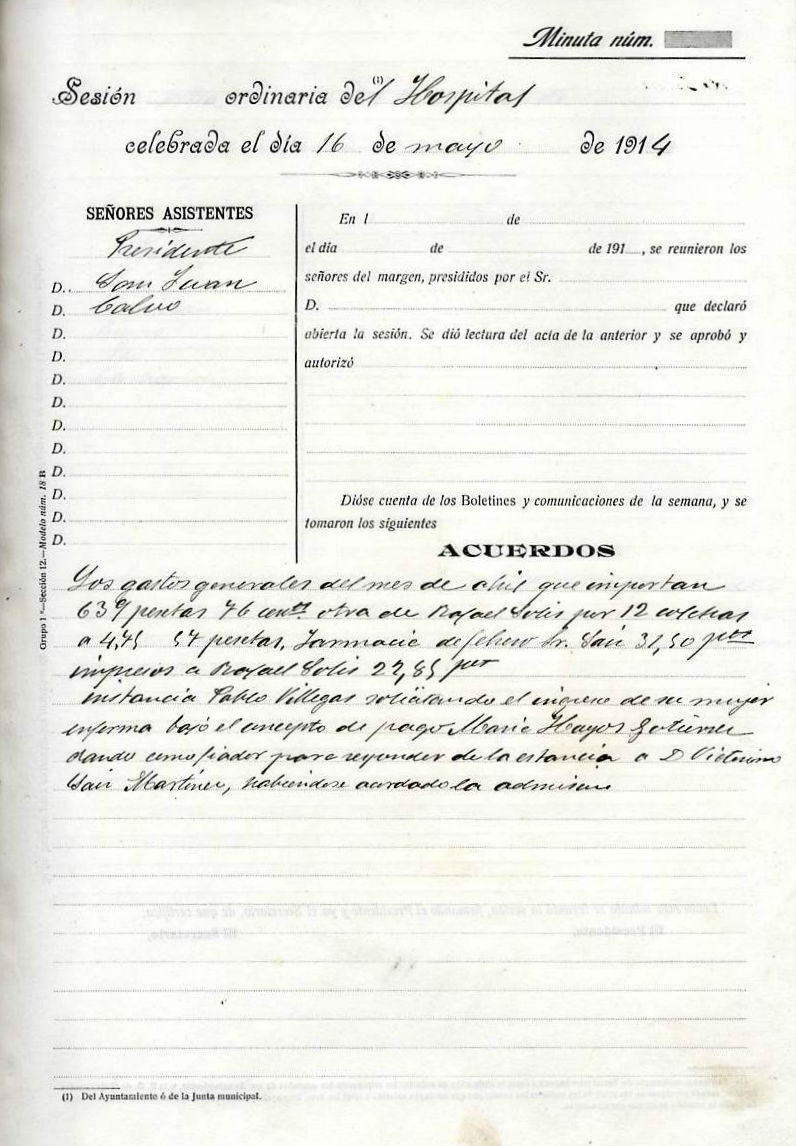 Minuta núm.
Sesión ordinaria de(1)l Hospital
celebrada el día 16 de mayo de 1914
SEÑORES ASISTENTES
Presidente
D. San Juan
D. Calvo
D.
D.
D.
D.
D.
D.
D.
D.
D.
D.
En l de
el día de de 191 , se reunieron los
señores del margen, presididos por el Sr.
D. que declaró
abierta la sesión. Se dió lectura del acta de la anterior y se aprobó y
autorizó
Dióse cuenta de los Boletines y comunicaciones de la semana, y se
tomaron los siguientes
ACUERDOS
Los gastos generales del mes de abril que importan
639 pesetas 76 cents otra de Rafael Solis por 12 colchas
a 4,45 54 pesetas, Farmacia de febrero Sr. Saiz 31,50 pts
impresos a Rafael Solis 22,85 pts
instancia Pablo Villegas solicitando el ingreso de su mujer
enferma bajo el concepto de pago Maria Hoyos Gutierrez
dando como fiador para responder de la estancia a D Victorino
Saiz Martinez, habiendose acordado la admision
Grupo 1.º—Sección 12.—Modelo núm. 18 B
(1) Del Ayuntamiento ó de la Junta municipal.